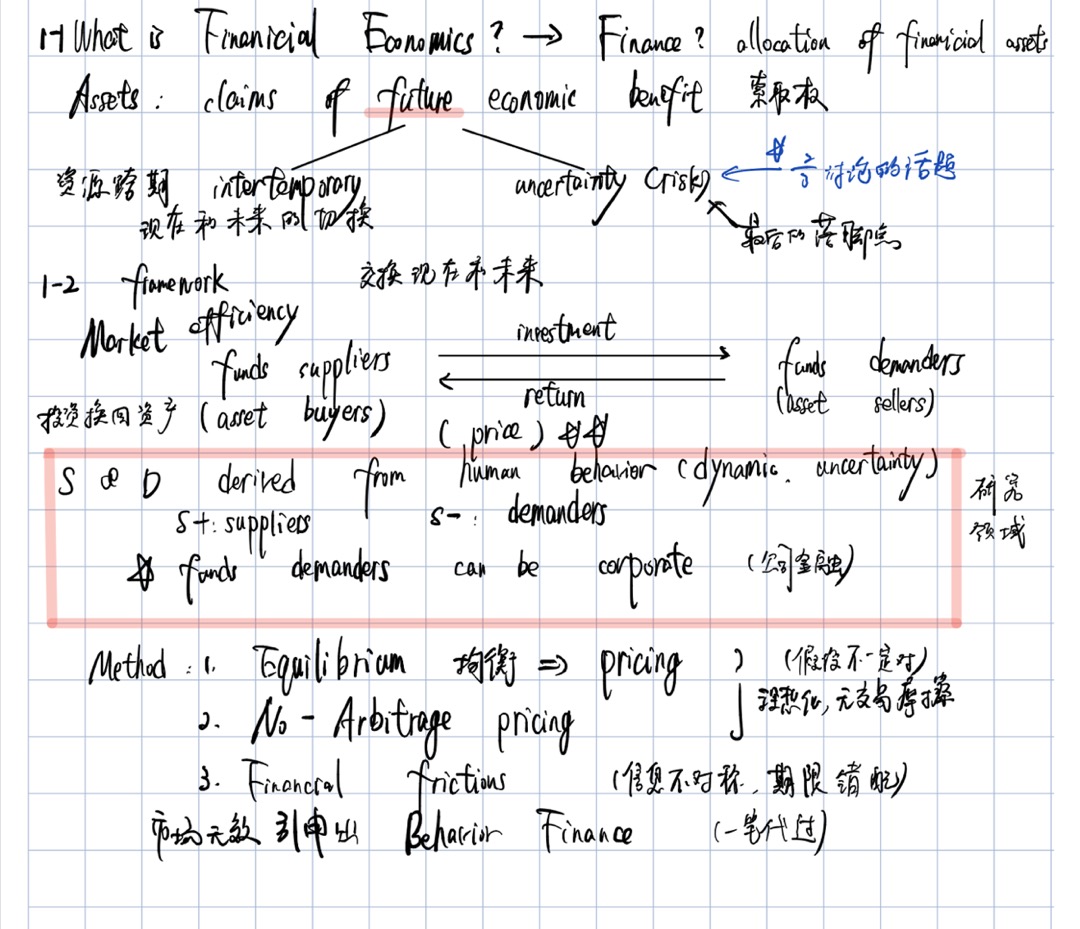 1-1 What is Finanicial Economics? → Finance? allocation of finanicial assets
Assets: claims of future economic benefit 索取权
资源跨期 intertemporary uncertainty (risk) ← 2/3 讨论的话题
现在和未来的切换 最后的落脚点
1-2 framework 交换现在和未来
Market efficiency
investment
funds suppliers funds demanders
return
投资换回资产 (asset buyers) (asset sellers)
(price)
S & D derived from human behavior (dynamic. uncertainty) 研究
S+: suppliers S-: demanders 领域
funds demanders can be corporate (公司金融)
Method: 1. Equilibrium 均衡 ⇒ pricing (假设不一定对)
理想化,无交易摩擦
2. No-Arbitrage pricing
3. Financial frictions (信息不对称, 期限错配)
市场无效 引申出 Behavior Finance (一笔代过)